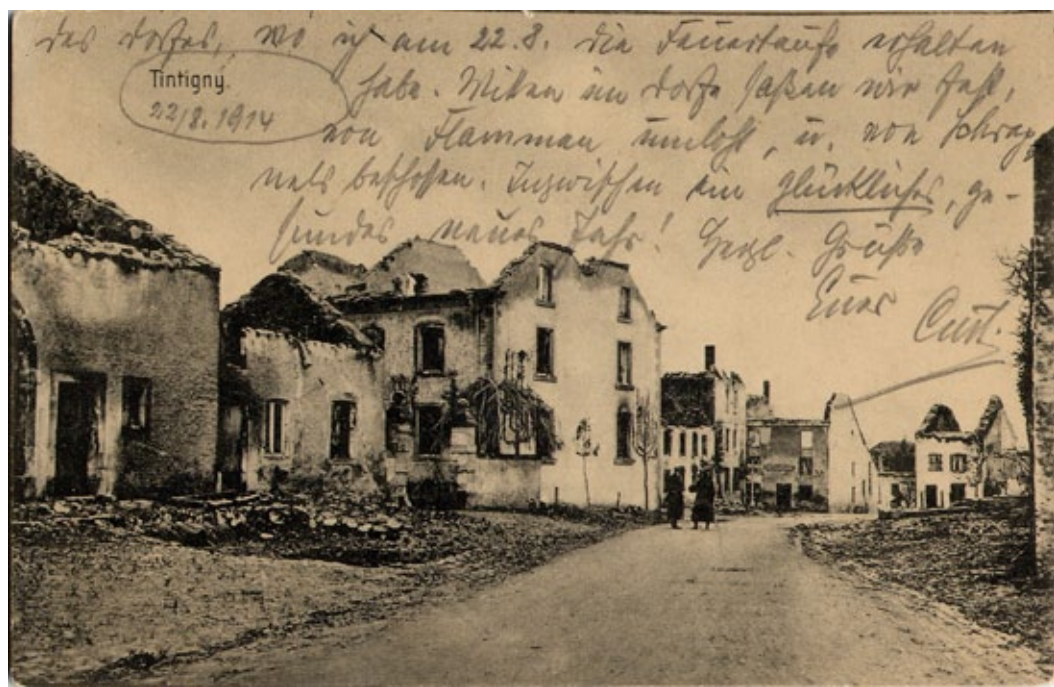 des Dorfes, wo ich am 22.8. die Feuertaufe erhalten
habe. Mitten im Dorfe saßen wir fest,
von Flammen umloht, u. von Schrap
nels beschossen. Inzwischen ein glückliches, ge-
sundes neues Jahr! Herzl. Grüße
Euer Curt.
Tintigny.
22/8. 1914